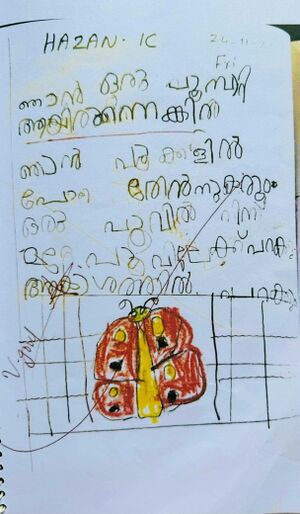 HAZAN. 1C
24-11-2
Fri
ഞാൻ ഒരു പൂമ്പാറ്റ
ആയിരുന്നെങ്കിൽ
ഞാൻ പൂക്കളിൽ
പോയി തേൻനുകരും
ഒരു പൂവിൽ നിന്ന്
മറ്റേ പൂവിലേക്ക് പറക്കും
ആകാശത്തിൽ പറക്കും
V-good